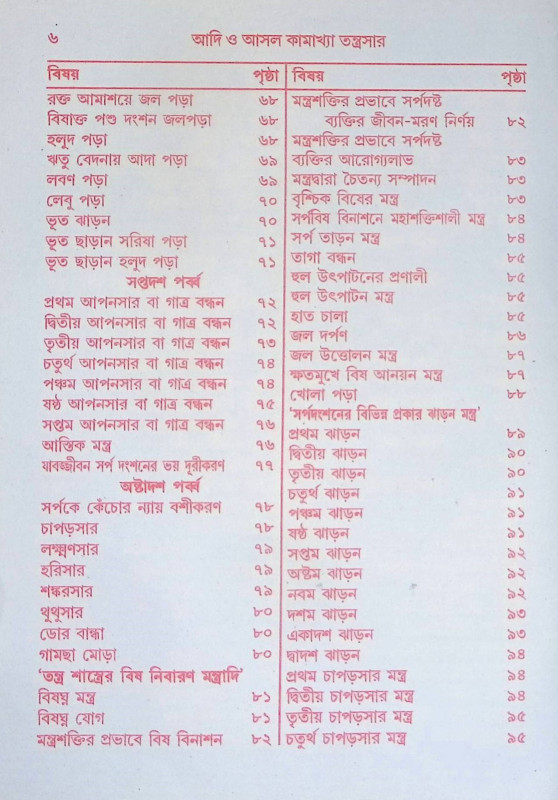 ৬ আদি ও আসল কামাখ্যা তন্ত্রসার
বিষয় পৃষ্ঠা
রক্ত আমাশয়ে জল পড়া ৬৮
বিষাক্ত পশু দংশন জলপড়া ৬৮
হলুদ পড়া ৬৮
ঋতু বেদনায় আদা পড়া ৬৯
লবণ পড়া ৬৯
লেবু পড়া ৭০
ভূত ঝাড়ন ৭০
ভূত ছাড়ান সরিষা পড়া ৭১
ভূত ছাড়ান হলুদ পড়া ৭১
সপ্তদশ পর্ব্ব
প্রথম আপনসার বা গাত্র বন্ধন ৭২
দ্বিতীয় আপনসার বা গাত্র বন্ধন ৭২
তৃতীয় আপনসার বা গাত্র বন্ধন ৭৩
চতুর্থ আপনসার বা গাত্র বন্ধন ৭৪
পঞ্চম আপনসার বা গাত্র বন্ধন ৭৪
ষষ্ঠ আপনসার বা গাত্র বন্ধন ৭৫
সপ্তম আপনসার বা গাত্র বন্ধন ৭৬
আস্তিক মন্ত্র ৭৬
যাবজ্জীবন সর্প দংশনের ভয় দূরীকরণ ৭৭
অষ্টাদশ পর্ব্ব
সর্পকে কেঁচোর ন্যায় বশীকরণ ৭৮
চাপড়সার ৭৮
লক্ষ্মণসার ৭৯
হরিসার ৭৯
শঙ্করসার ৭৯
থুথুসার ৮০
ডোর বান্ধা ৮০
গামছা মোড়া ৮০
‘তন্ত্র শাস্ত্রের বিষ নিবারণ মন্ত্রাদি’
বিষঘ্ন মন্ত্র ৮১
বিষঘ্ন যোগ ৮১
মন্ত্রশক্তির প্রভাবে বিষ বিনাশন ৮২
বিষয় পৃষ্ঠা
মন্ত্রশক্তির প্রভাবে সর্পদষ্ট
ব্যক্তির জীবন-মরণ নির্ণয় ৮২
মন্ত্রশক্তির প্রভাবে সর্পদষ্ট
ব্যক্তির আরোগ্যলাভ ৮৩
মন্ত্রদ্বারা চৈতন্য সম্পাদন ৮৩
বৃশ্চিক বিষের মন্ত্র ৮৩
সর্পবিষ বিনাশনে মহাশক্তিশালী মন্ত্র ৮৪
সর্প তাড়ন মন্ত্র ৮৪
তাগা বন্ধন ৮৫
হুল উৎপাটনের প্রণালী ৮৫
হুল উৎপাটন মন্ত্র ৮৫
হাত চালা ৮৫
জল দর্পণ ৮৬
জল উত্তোলন মন্ত্র ৮৭
ক্ষতমুখে বিষ আনয়ন মন্ত্র ৮৭
খোলা পড়া ৮৮
‘সর্পদংশনের বিভিন্ন প্রকার ঝাড়ন মন্ত্র’
প্রথম ঝাড়ন ৮৯
দ্বিতীয় ঝাড়ন ৯০
তৃতীয় ঝাড়ন ৯০
চতুর্থ ঝাড়ন ৯১
পঞ্চম ঝাড়ন ৯১
ষষ্ঠ ঝাড়ন ৯১
সপ্তম ঝাড়ন ৯২
অষ্টম ঝাড়ন ৯২
নবম ঝাড়ন ৯২
দশম ঝাড়ন ৯৩
একাদশ ঝাড়ন ৯৩
দ্বাদশ ঝাড়ন ৯৪
প্রথম চাপড়সার মন্ত্র ৯৪
দ্বিতীয় চাপড়সার মন্ত্র ৯৪
তৃতীয় চাপড়সার মন্ত্র ৯৫
চতুর্থ চাপড়সার মন্ত্র ৯৫